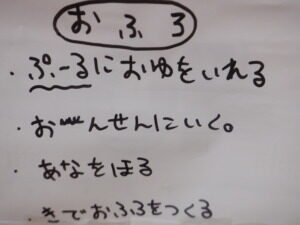 おふろ
・ぷーるにおゆをいれる
・おんせんにいく。
・あなをほる
・きでおふろをつくる